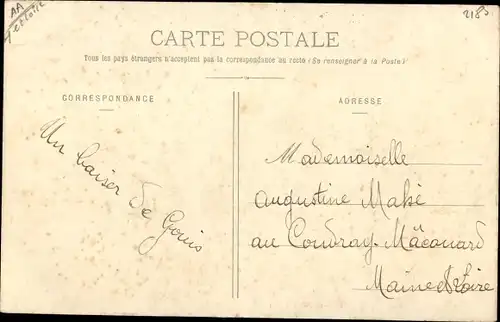 AA
2185
CARTE POSTALE
Tous les pays étrangers n'acceptent pas la correspondance au recto (Se renseigner à la Poste)
CORRESPONDANCE
ADRESSE
Un baiser
de Gouis
Mademoiselle
Augustine Mahé
au Coudray-Mâcouard
Maine et Loire